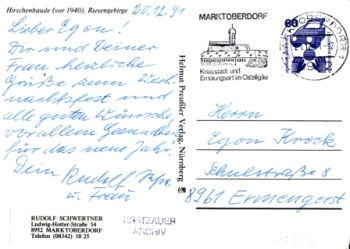 Hirschenbaude (vor 1940), Riesengebirge
20.12.91
Lieber Egon!
Dir und Deiner
Frau herzliche
Grüße zum Weih-
nachtsfest und
alle guten Wünsche,
vor allem Gesundheit
für das neue Jahr.
Dein Rudolf
u. Frau
RUDOLF SCHWERTNER
Ludwig-Hotter-Straße 54
8952 MARKTOBERDORF
Telefon (08342) 10 25
KRATZAUER
ARCHIV
Helmut Preußler Verlag, Nürnberg
MARKTOBERDORF
Kreisstadt und
Erholungsort im Ostallgäu
60
Herrn
Egon Krock
Schulstraße 8
8961 Ermengerst